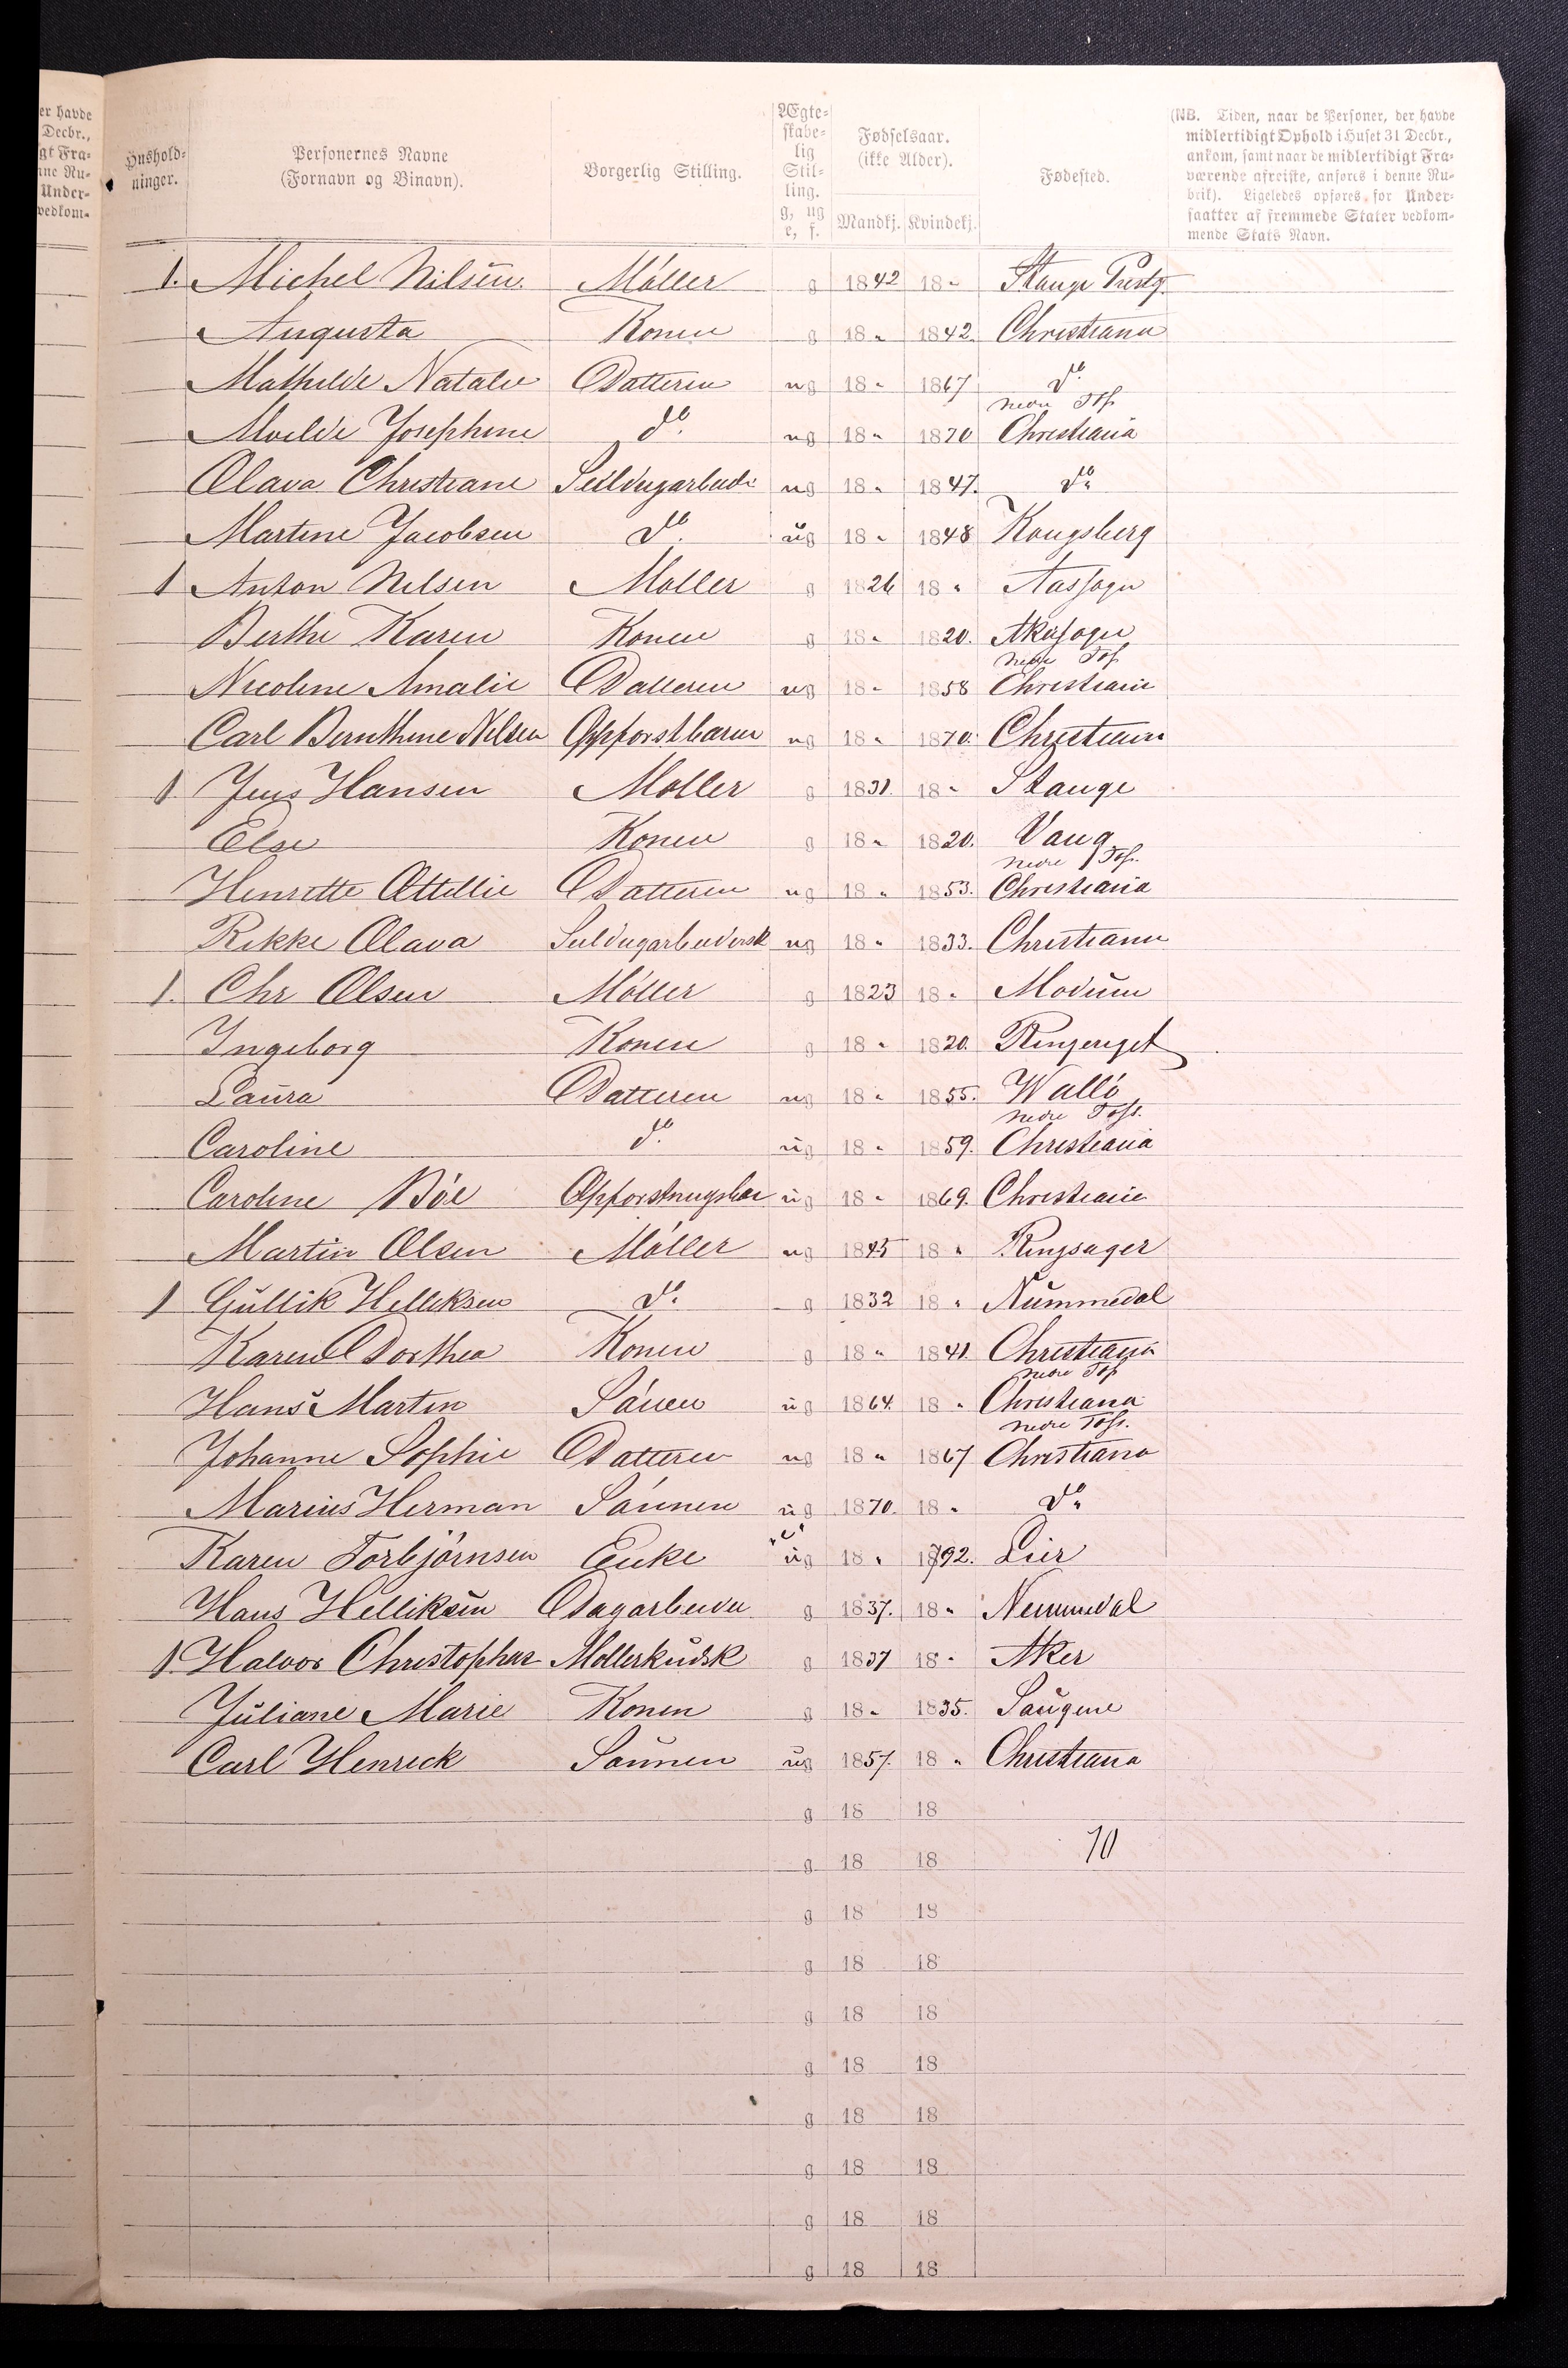 er havde
Decbr.,
gt Fra=
nne Ru=
Under=
vedkom=
Hushold=
ninger.
Personernes Navne
(Fornavn og Binavn).
Borgerlig Stilling.
Ægte=
skabe=
lig
Stil=
ling.
g, ug
e, f.
Fødselsaar.
(ikke Alder).
Mandkj. Kvindekj.
Fødested.
(NB. Tiden, naar de Personer, der havde
midlertidigt Ophold i Huset 31 Decbr.,
ankom, samt naar de midlertidigt Fra=
værende afreiste, anføres i denne Ru=
brik). Ligeledes opføres for Under=
saatter af fremmede Stater vedkom=
mende Stats Navn.
1. Michel Nilsen. Møller g 1842 18 " Stange Prestg.
Augusta Konen g 18 " 1842. Christiania
Mathilde Natalie Datteren ug 18 " 1867 do
nedre Tos
Josephine do. ug 18 " 1870 Christiania
Olava Christiane ug 18 " 1847. do
Martine Jacobsen do. ug 18 " 1848 Kongsberg
1 Anton Nilsen Møller g 1826 18 " Aas sogn
Berthe Karen Konen g 18 " 1820. Aker sogn
nedre Tos
Nicoline Amalie Datteren ug 18 " 1858 Christiania
Carl Bernthine Nilsen Opfostbarn ug 18 " 1870. Christiania
1 Jens Hansen Møller g 1831. 18 " Stange
Else Konen g 18 " 1820. Vang
nedre Tos.
Henrette Ottillie Datteren ug 18 " 1853. Christiania
Rikke Olava ug 18 " 1833. Christiania
1. Chr Olsen Møller g 1823 18 " Modum
Ingeborg Konen g 18 " 1820. Ringeriget
Laura Datteren ug 18 " 1855. Wallö
nedre Tos.
Caroline do. ug 18 " 1859. Christiania
Caroline Böe Opfostringsbar ug 18 " 1869. Christiania
Martin Olsen Møller ug 1845 18 " Ringsager
1 Gullik Helleksen do. g 1832 18 " Nummedal
Karen Dorthea Konen g 18 " 1841. Christiania
nedre Tos
Hans Martin Sönen ug 1864. 18 " Christiania
nedre Tos.
Johanne Sophie Datteren ug 18 " 1867 Christiania
Marius Herman Sönnen ug 1870. 18 " do
"e"
Karen Torbjörnsen Enke ug 18 " 1792. Lier
Hans Helliksen Dagarbeider g 1837. 18 " Nummedal
1. Halvor Christophers Møllerkudsk g 1837 18 " Aker
Juliane Marie Konen g 18 " 1835. Saugene
Carl Henrick Sönnen ug 1857. 18 " Christiania
g 18 18
g 18 18 10
g 18 18
g 18 18
g 18 18
g 18 18
g 18 18
g 18 18
g 18 18
g 18 18